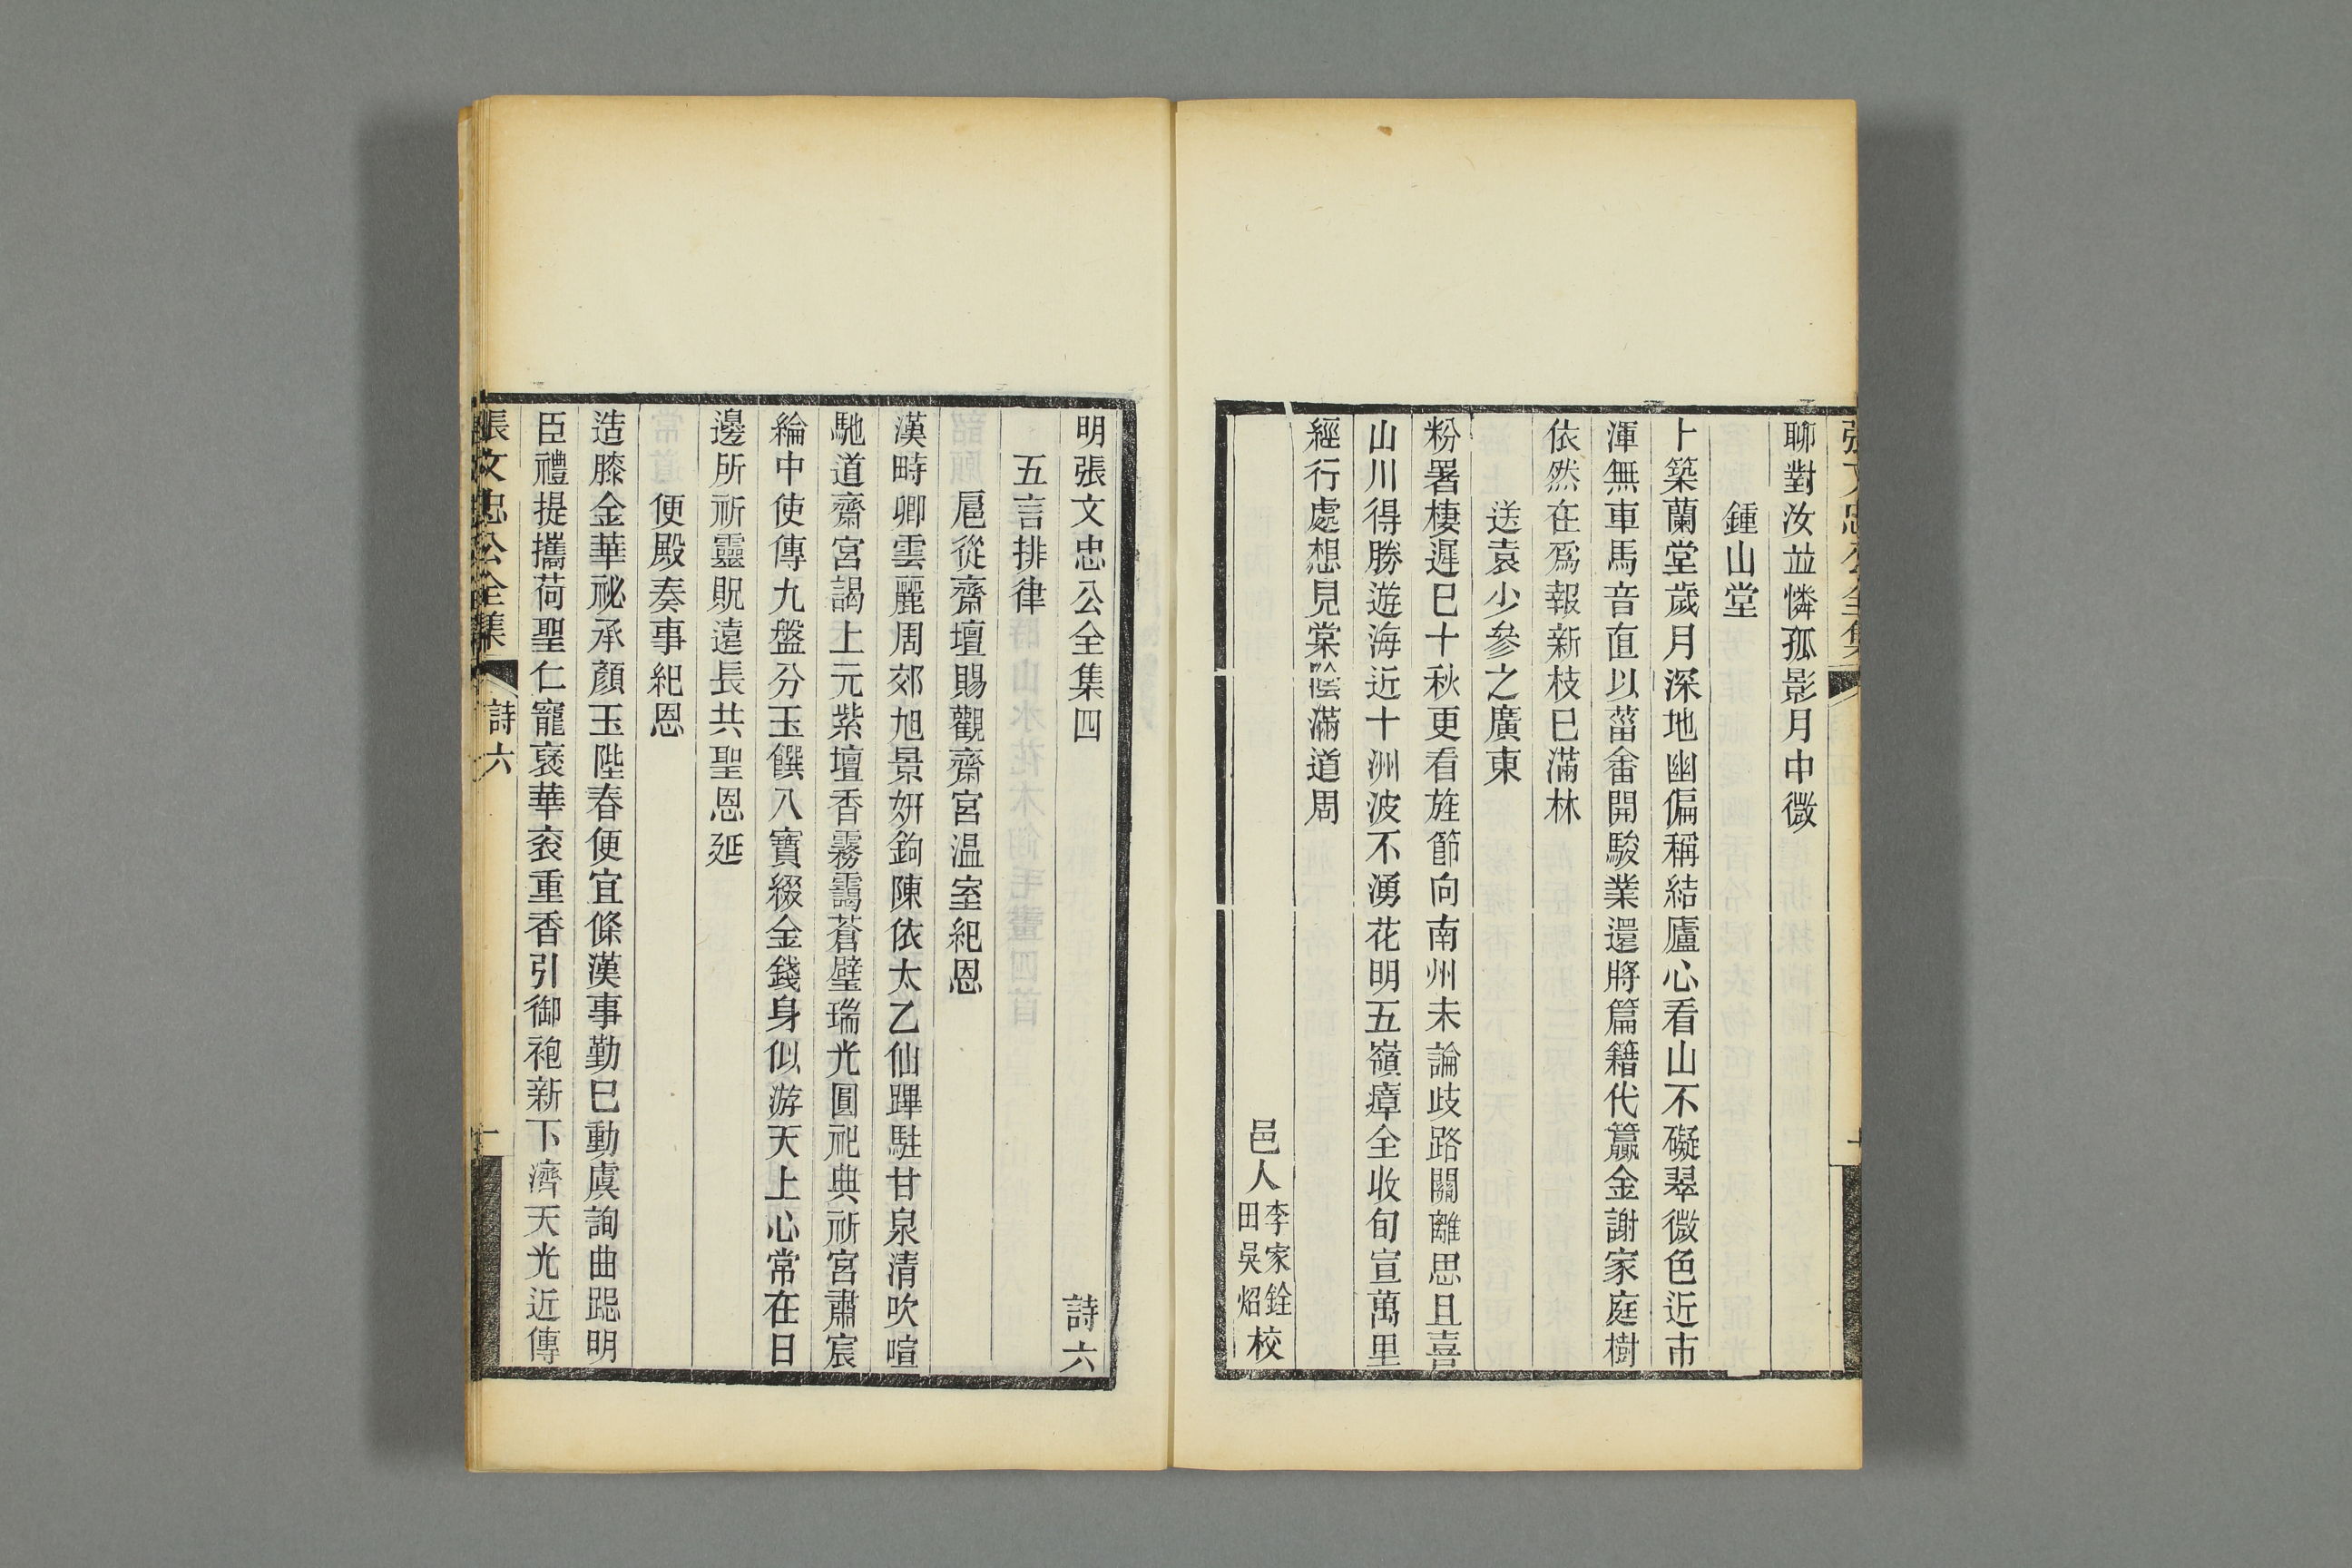 聊對汝並憐孤影月中微
鍾山堂
卜築蘭堂歲月深地幽偏稱結廬心看山不礙翠微色近市
渾無車馬音直以菑畬開駿業還將篇籍代籯金謝家庭樹
依然在爲報新枝巳滿林
送袁少參之廣東
粉署棲遲巳十秋更看旌節向南州未論歧路關離思且喜
山川得勝遊海近十洲波不湧花明五嶺瘴全收旬宣萬里
經行處想見棠陰滿道周
邑人
李家銓
田吳炤
校
明張文忠公全集四
詩六
五言排律
扈從齋壇賜觀齋宮温室紀恩
漢畤卿雲麗周郊旭景妍鉤陳依太乙仙蹕駐甘泉清吹喧
馳道齋宮謁上元紫壇香霧靄蒼璧瑞光圓祀典祈宮肅宸
綸中使傳九盤分玉饌八寶綴金錢身似游天上心常在日
邊所祈靈貺遠長共聖恩延
便殿奏事紀恩
造膝金華祕承顏玉陛春便宜條漢事勤巳動虞詢曲跽明
臣禮提攜荷聖仁寵褒華衮重香引御袍新下濟天光近傳
張文忠公全集
詩六
一